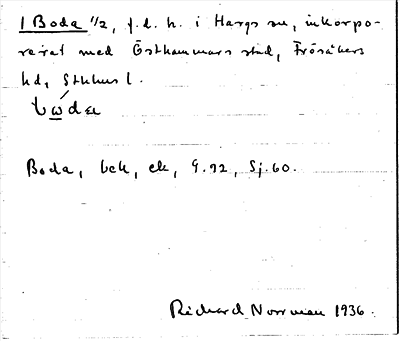 1 Boda 1/2, f.d. h. i Hargs sn, inkorpo-
rerat med Östhammars stad, Frösåkers
hd, Sthlms l.
Boda, bck, ek, G. 92, Sj. 60.
Richard Norrman 1936.